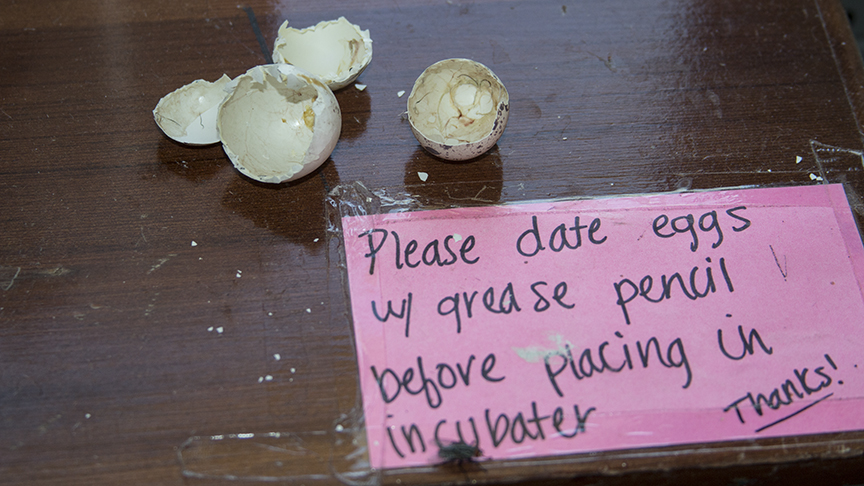 Please date eggs
w/ grease pencil
before placing in
incubater
Thanks!